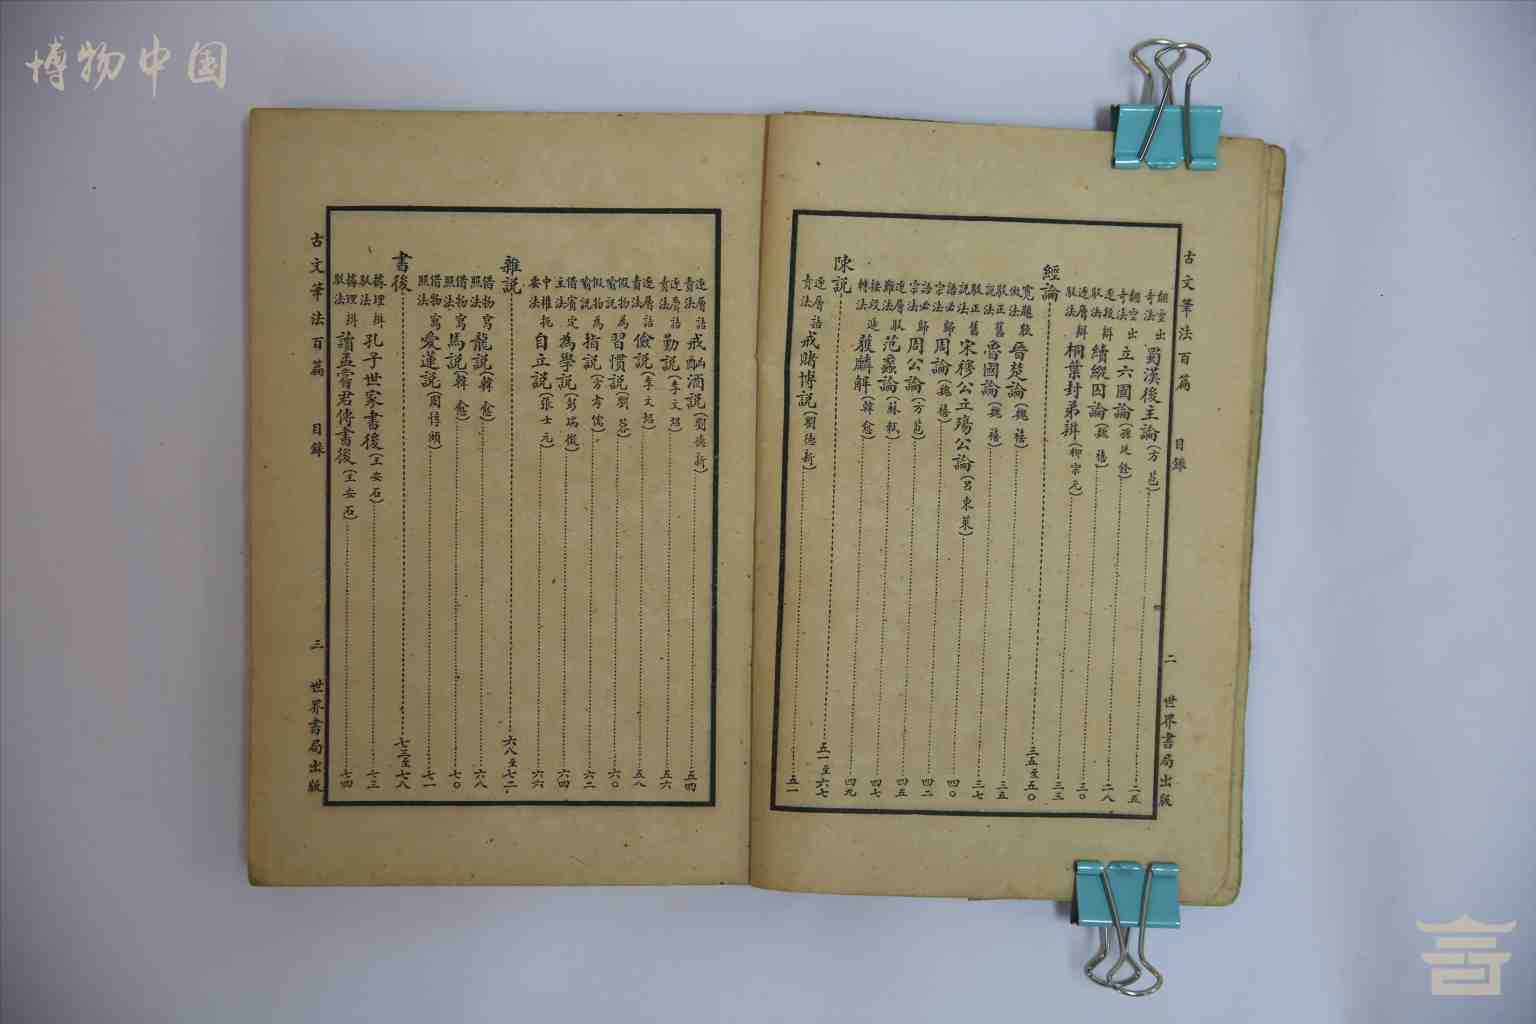 博物中国
古文筆法百篇 目錄 二 世界書局出版
翻空出奇法 蜀漢後主論(方苞) 二五
翻空出奇法 立六國論 二八
逐段辯駁法 續縱囚論(魏禧) 三〇
逐層辯駁法 桐葉封弟辨(柳宗元) 三三
經論 三五至五〇
寬題緊做法 晉楚論(魏禧) 三五
駁正舊說法 魯國論(魏禧) 三七
駁正舊說法 宋穆公立殤公論(呂東萊) 四〇
語必歸宗法 周論(魏禧) 四二
語必歸宗法 周公論(方苞) 四五
逐層駁難法 范蠡論(蘇軾) 四七
按段逆轉法 獲麟解(韓愈) 四九
陳說 五一至六七
逐層詰責法 戒賭博說(劉德新) 五一
逐層詰責法 戒酗酒說(劉德新) 五四
逐層詰責法 勤說(李文炤) 五六
逐層詰責法 儉說(李文炤) 五八
假物為喻說 習慣說(劉蓉) 六〇
假物為喻說 指說(方孝儒) 六二
借賓定主法 為學說(彭端淑) 六四
中權扼要法 自立說(張士元) 六六
雜說 六八至七二
借物寫照法 龍說(韓愈) 六八
借物寫照法 馬說(韓愈) 七〇
借物寫照法 愛蓮說(周惇頤) 七一
書後 七三至七八
據理辯駁法 孔子世家書後(王安石) 七三
據理辯駁法 讀孟嘗君傳書後(王安石) 七四
古文筆法百篇 目錄 三 世界書局出版